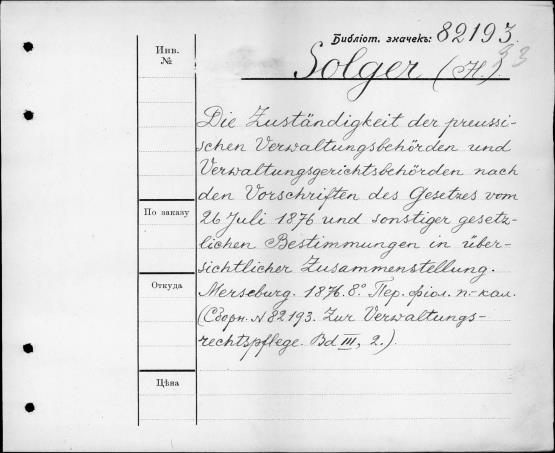 Библіот. значекъ: 82193.
33
Инв.
№
Solger (H.).
Die Zuständigkeit der preussi-
schen Verwaltungsbehörden und
Verwaltungsgerichtsbehörden nach
den Vorschriften des Gesetzes vom
По заказу
26 Juli 1876 und sonstiger gesetz-
lichen Bestimmungen in über-
sichtlicher Zusammenstellung.
Откуда
Merseburg. 1876. 8º. Пер. фіол. п.-кал.
(Сборн. N 82193. Zur Verwaltungs-
rechtspflege. Bd III, 2.).
Цѣна